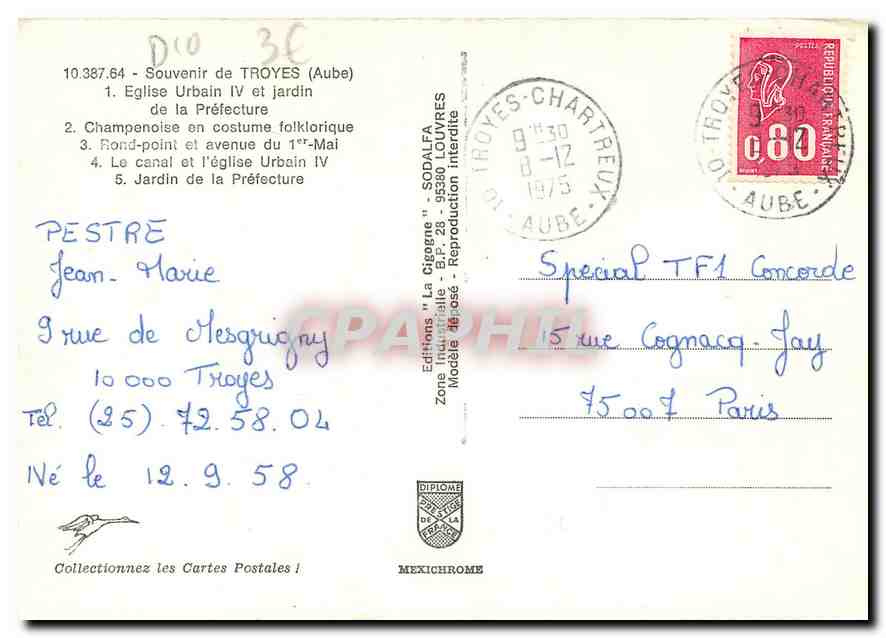 D10 3€
10.387.64 - Souvenir de TROYES (Aube)
1. Eglise Urbain IV et jardin
de la Préfecture
2. Champenoise en costume folklorique
3. Rond-point et avenue du 1er-Mai
4. Le canal et l'église Urbain IV
5. Jardin de la Préfecture
PESTRE
Jean-Marie
9 rue de Mesgrigny
10 000 Troyes
Tel. (25). 72.58.04
Né le 12.9.58
Collectionnez les Cartes Postales !
Editions "La Cigogne" - SODALFA
Zone Industrielle - B.P. 28 - 95380 LOUVRES
Modèle déposé - Reproduction interdite
DIPLOME
PRESTIGE
DE LA
FRANCE
MEXICHROME
10 TROYES-CHARTREUX
9H30
8-12
1975
AUBE
POSTES
REPUBLIQUE FRANÇAISE
0,80
10 TROYES-CHARTREUX
9 30
AUBE
Special TF1 Concorde
15 rue Cognacq-Jay
75007 Paris
CPAPHIL